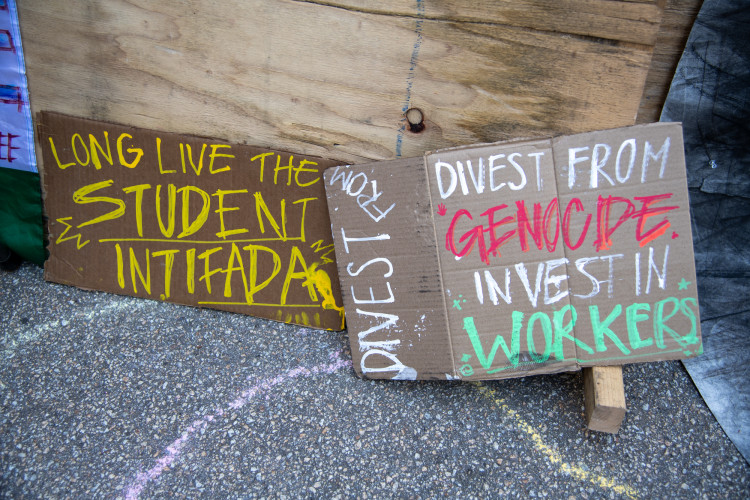 LONG LIVE THE
STUDENT
INTIFADA
DIVEST FROM
DIVEST FROM
GENOCIDE
INVEST IN
WORKERS